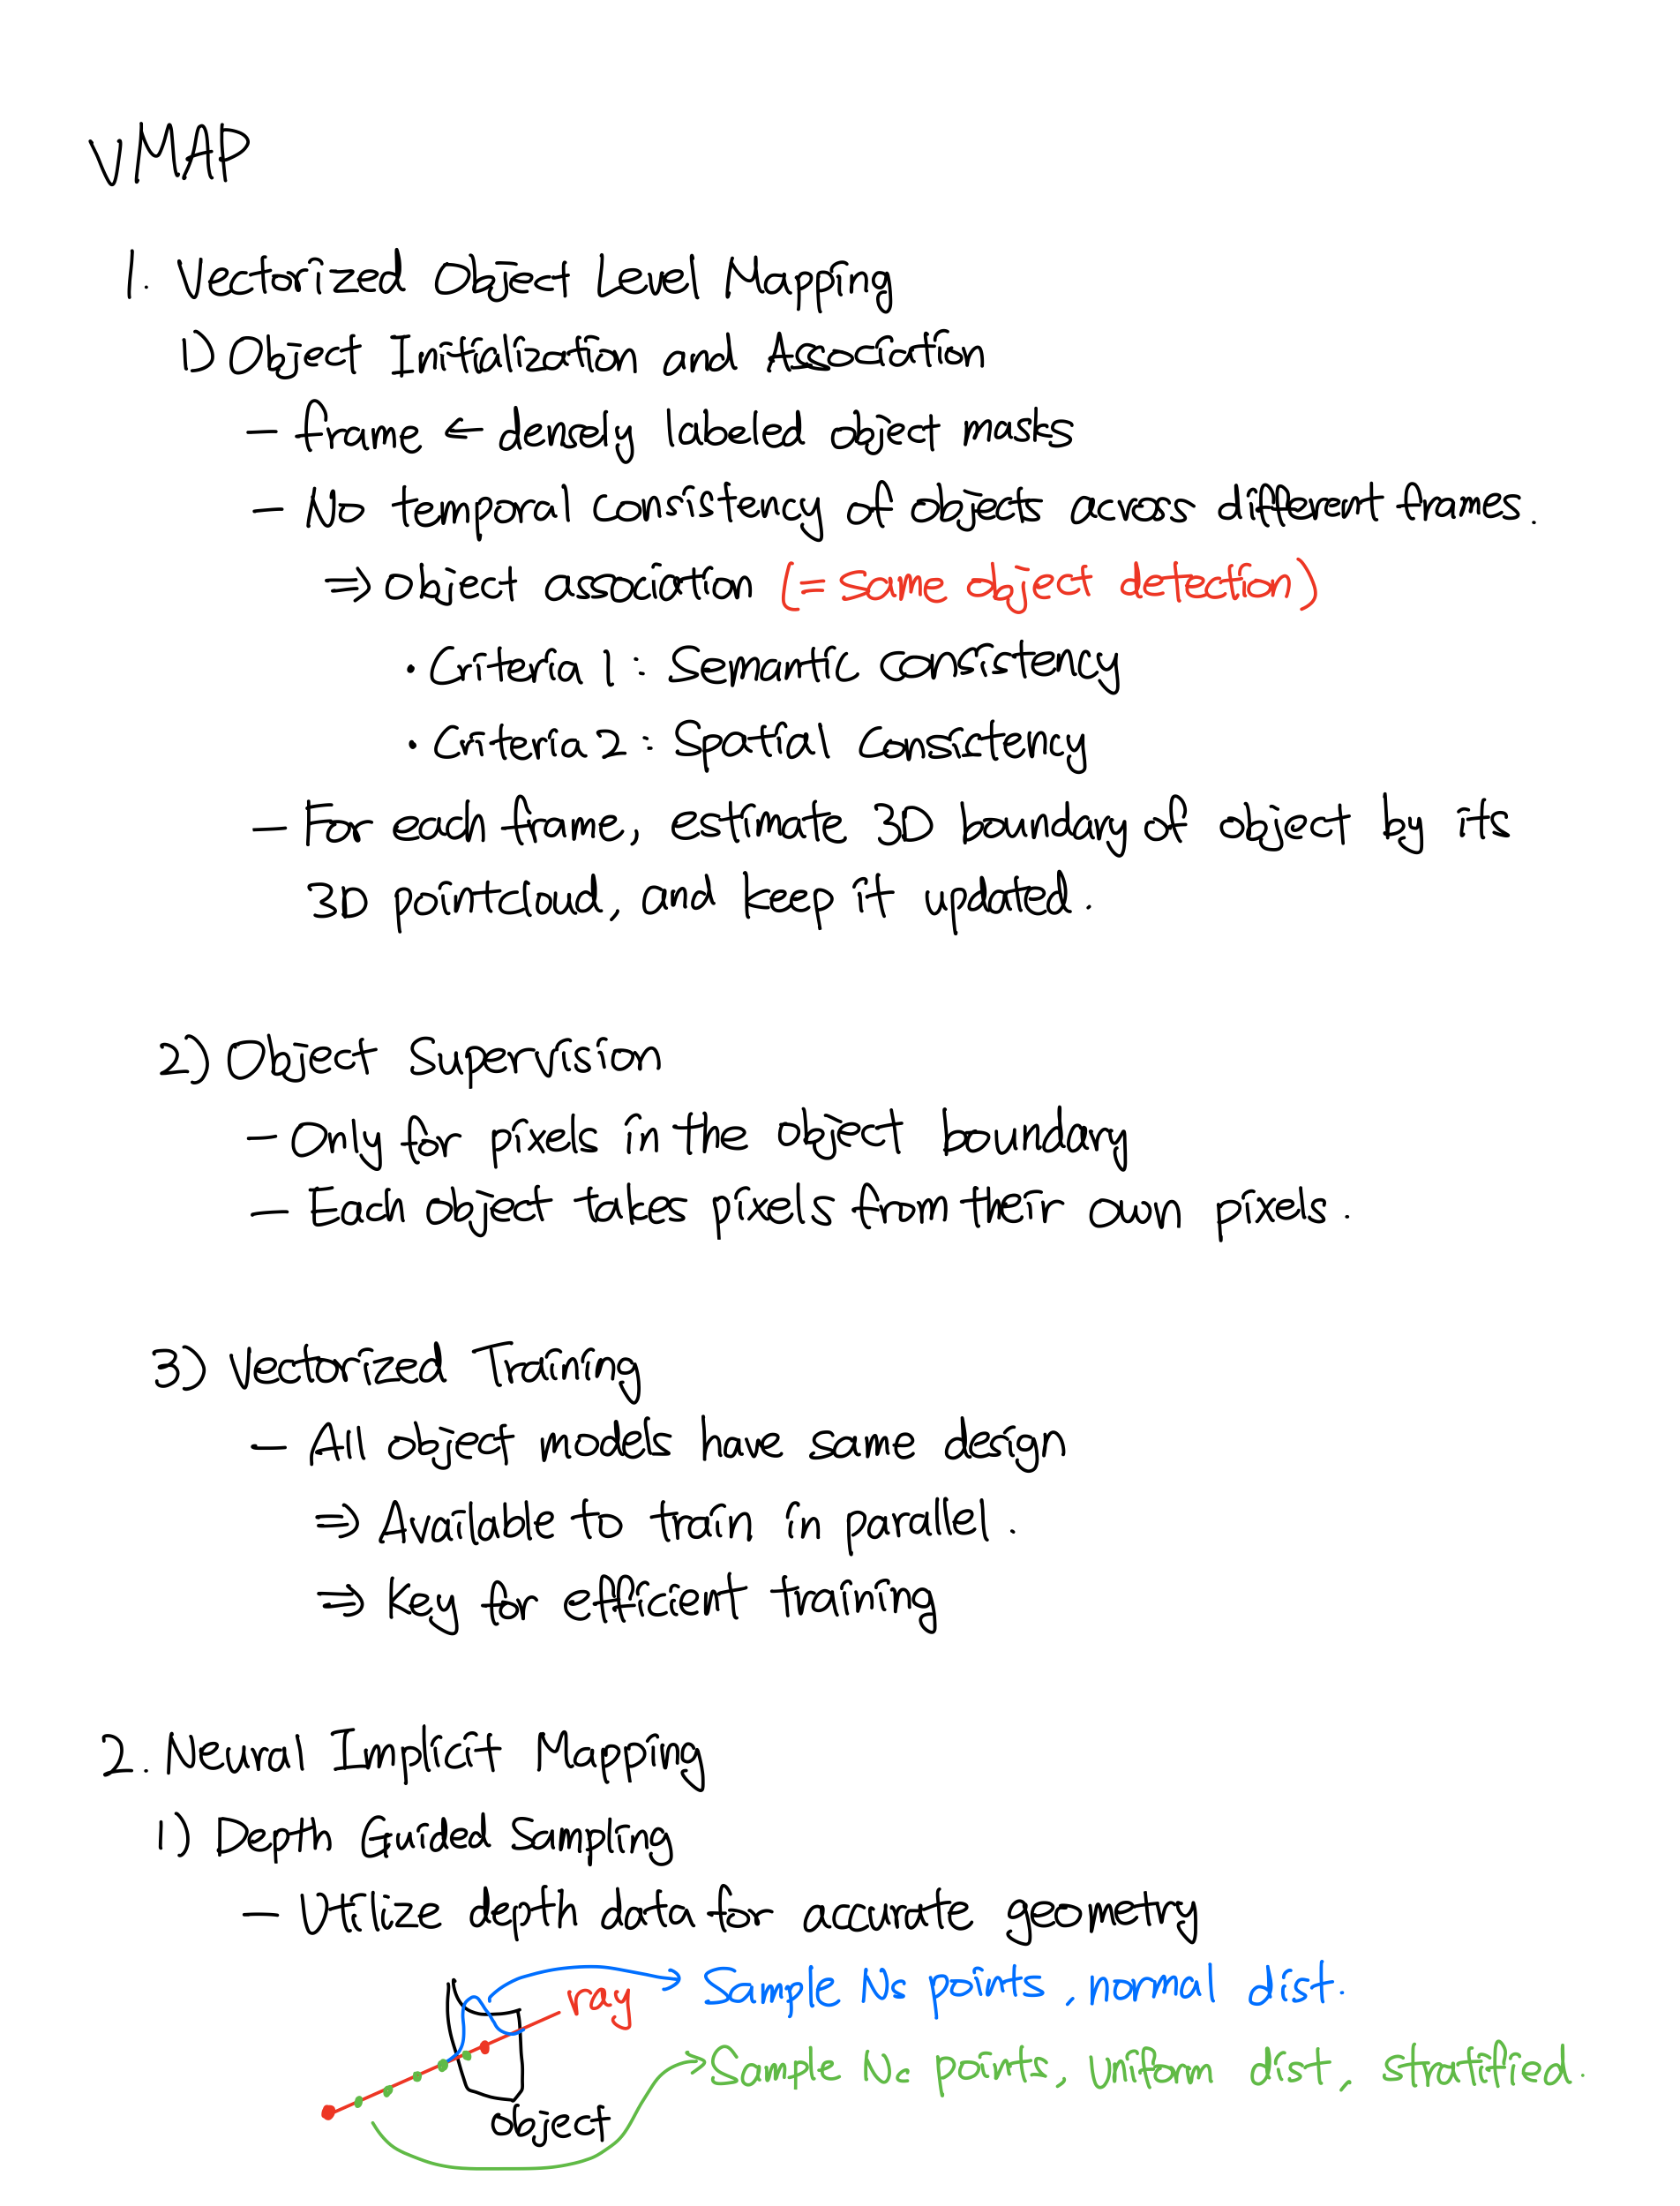 vMAP
1. Vectorized Object Level Mapping
1) Object Initialization and Association
- frame ← densely labeled object masks
- No temporal consistency of objects across different frames.
⇒ object association (= same object detection)
• Criteria 1 : Semantic consistency
• Criteria 2 : Spatial consistency
- For each frame, estimate 3D boundary of object by its
3D pointcloud, and keep it updated.
2) Object Supervision
- Only for pixels in the object boundary
- Each object takes pixels from their own pixels.
3) Vectorized Training
- All object models have same design
⇒ Available to train in parallel.
⇒ Key for efficient training
2. Neural Implicit Mapping
1) Depth Guided Sampling
- Utilize depth data for accurate geometry
Sample Ns points, normal dist.
ray
Sample Nc points, uniform dist, stratified.
object